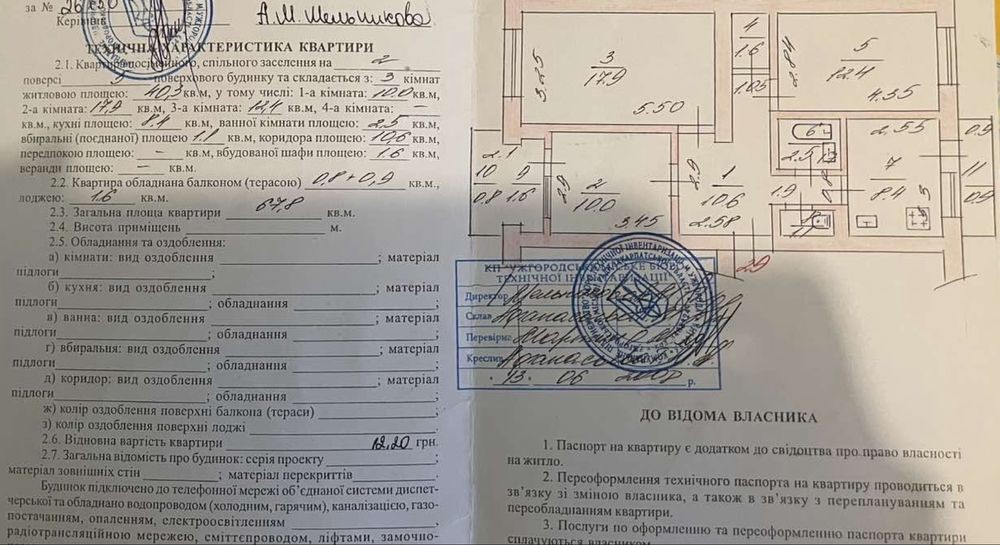 за № 26250
Керівник А.М. Мельникова
ТЕХНІЧНА ХАРАКТЕРИСТИКА КВАРТИРИ
2.1. Квартира посімейного, спільного заселення на 2
поверсі 5 поверхового будинку та складається з: 3 кімнат
житловою площею: 40,3 кв.м, у тому числі: 1-а кімната: 10,0 кв.м,
2-а кімната: 17,9 кв.м, 3-а кімната: 12,4 кв.м, 4-а кімната: –
кв.м., кухні площею: 8.4 кв.м, ванної кімнати площею: 2,5 кв.м,
вбиральні (поєднаної) площею 1.1 кв.м, коридора площею: 10,6 кв.м,
передпокою площею: – кв.м, вбудованої шафи площею: 1.6 кв.м,
веранди площею: – кв.м.
2.2. Квартира обладнана балконом (терасою) 0,8+0,9 кв.м.,
лоджею: 1.6 кв.м.
2.3. Загальна площа квартири 67,8 кв.м.
2.4. Висота приміщень м.
2.5. Обладнання та оздоблення:
а) кімнати: вид оздоблення ; матеріал
підлоги ;
б) кухня: вид оздоблення ; матеріал
підлоги ; обладнання
в) ванна: вид оздоблення ; матеріал
підлоги ; обладнання
г) вбиральня: вид оздоблення ; матеріал
підлоги ; обладнання
д) коридор: вид оздоблення ; матеріал
підлоги ; обладнання
ж) колір оздоблення поверхні балкона (тераси) ;
з) колір оздоблення поверхні лоджі
2.6. Відновна вартість квартири 12,20 грн.
2.7. Загальна відомість про будинок: серія проекту ;
матеріал зовнішніх стін ; матеріал перекриттів
Будинок підключено до телефонної мережі об'єднаної системи диспет-
черської та обладнано водопроводом (холодним, гарячим), каналізацією, газо-
постачанням, опаленням, електроосвітленням ,
радіотрансляційною мережею, сміттєпроводом, ліфтами, замочно-
3
17.9
3.25
5.50
4
1.6
1.05
5
12.4
2.84
4.35
6
2.5
2.55
7
8.4
0.9
11
0.9
2.1
10
0.8
9
1.6
2
10.0
2.9
3.45
1
10.6
2.9
2.58
1.9
0.8
29
КП "УЖГОРОДСЬКЕ МІСЬКЕ БЮРО
ТЕХНІЧНОЇ ІНВЕНТАРИЗАЦІЇ"
Директор
Склав
Перевірив
Креслив
13. 06 2008 р.
ДО ВІДОМА ВЛАСНИКА
1. Паспорт на квартиру є додатком до свідоцтва про право власності
на житло.
2. Переоформлення технічного паспорта на квартиру проводиться в
зв'язку зі зміною власника, а також в зв'язку з переплануванням та
переобладнанням квартири.
3. Послуги по оформленню та переоформленню паспорта квартири
сплачуються власником.